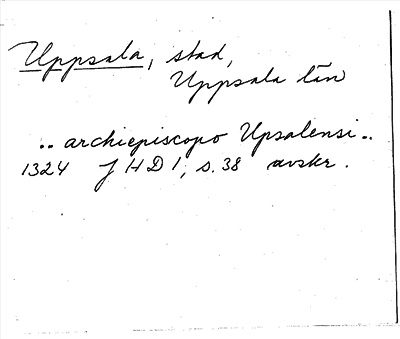 Uppsala, stad,
Uppsala län
.. archiepiscopo Upsalensi..
1324 JHD 1, s. 38 avskr.